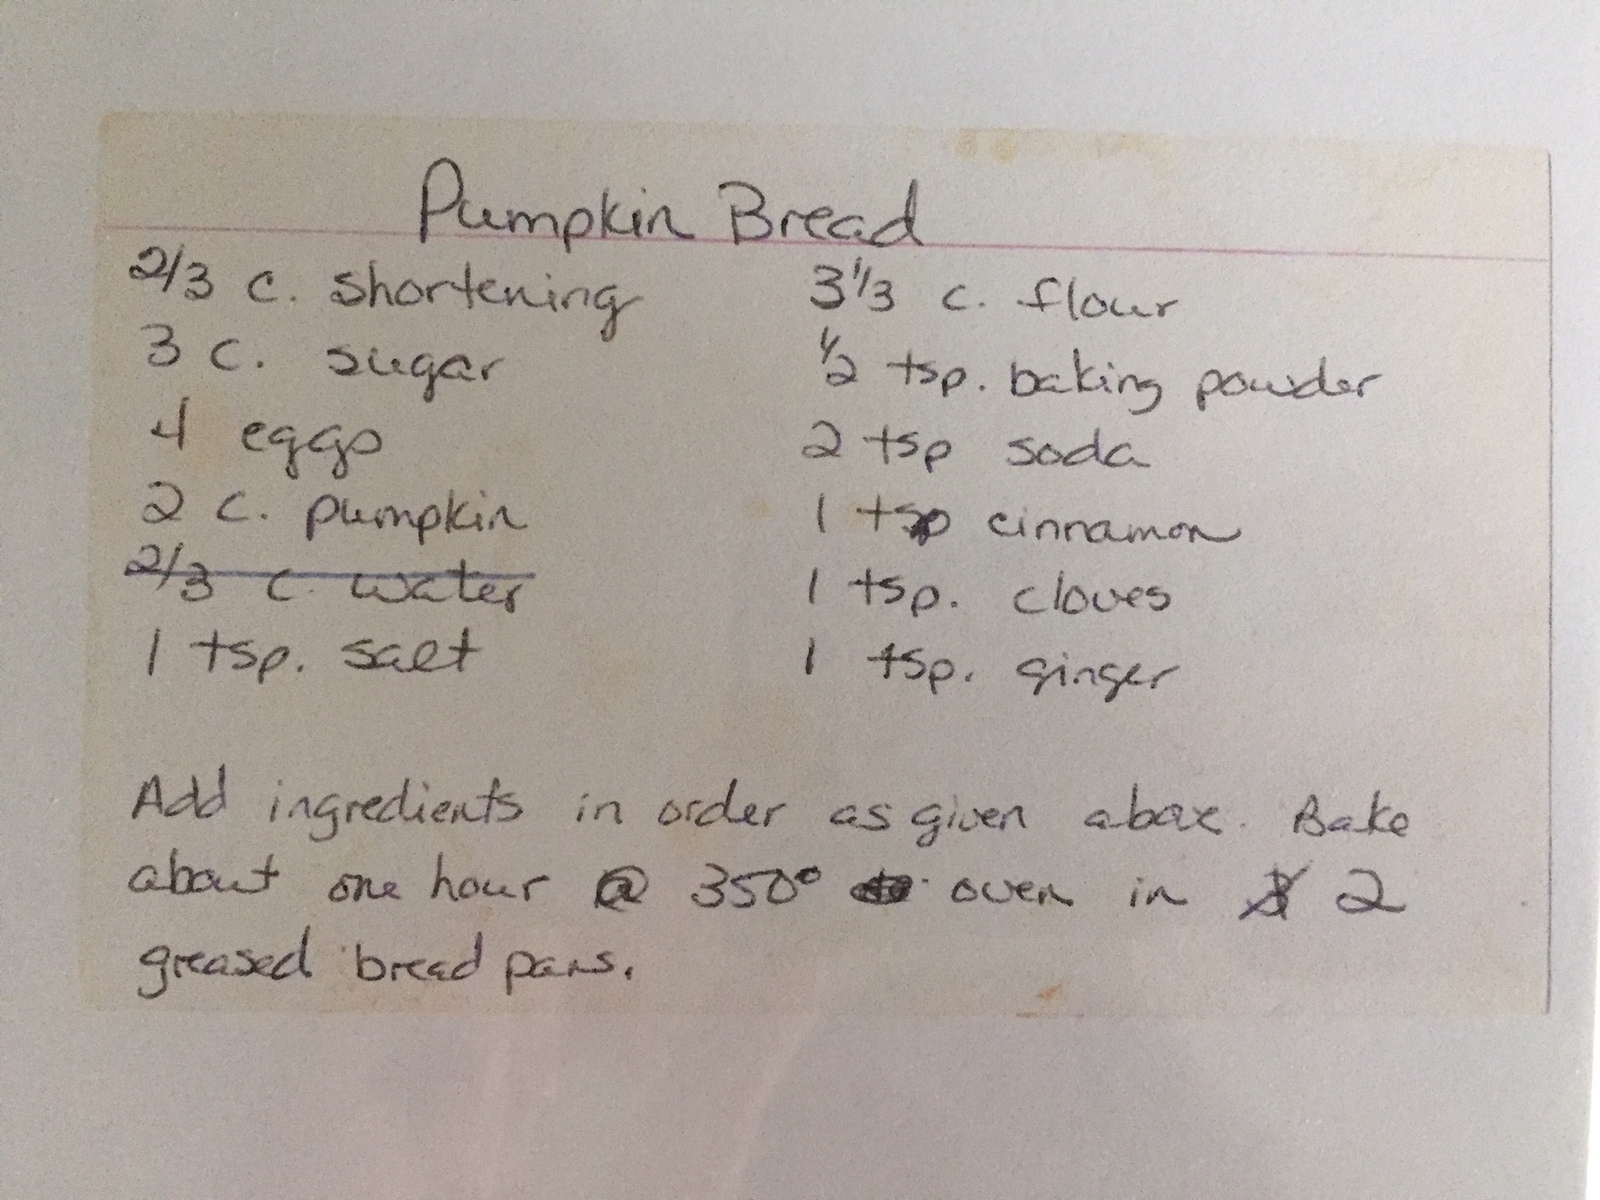 Pumpkin Bread
2/3 c. shortening
3 c. sugar
4 eggs
2 c. pumpkin
2/3 c. water
1 tsp. salt
3 1/3 c. flour
1/2 tsp. baking powder
2 tsp soda
1 tsp cinnamon
1 tsp. cloves
1 tsp. ginger
Add ingredients in order as given above. Bake
about one hour @ 350° oven in 2
greased bread pans.